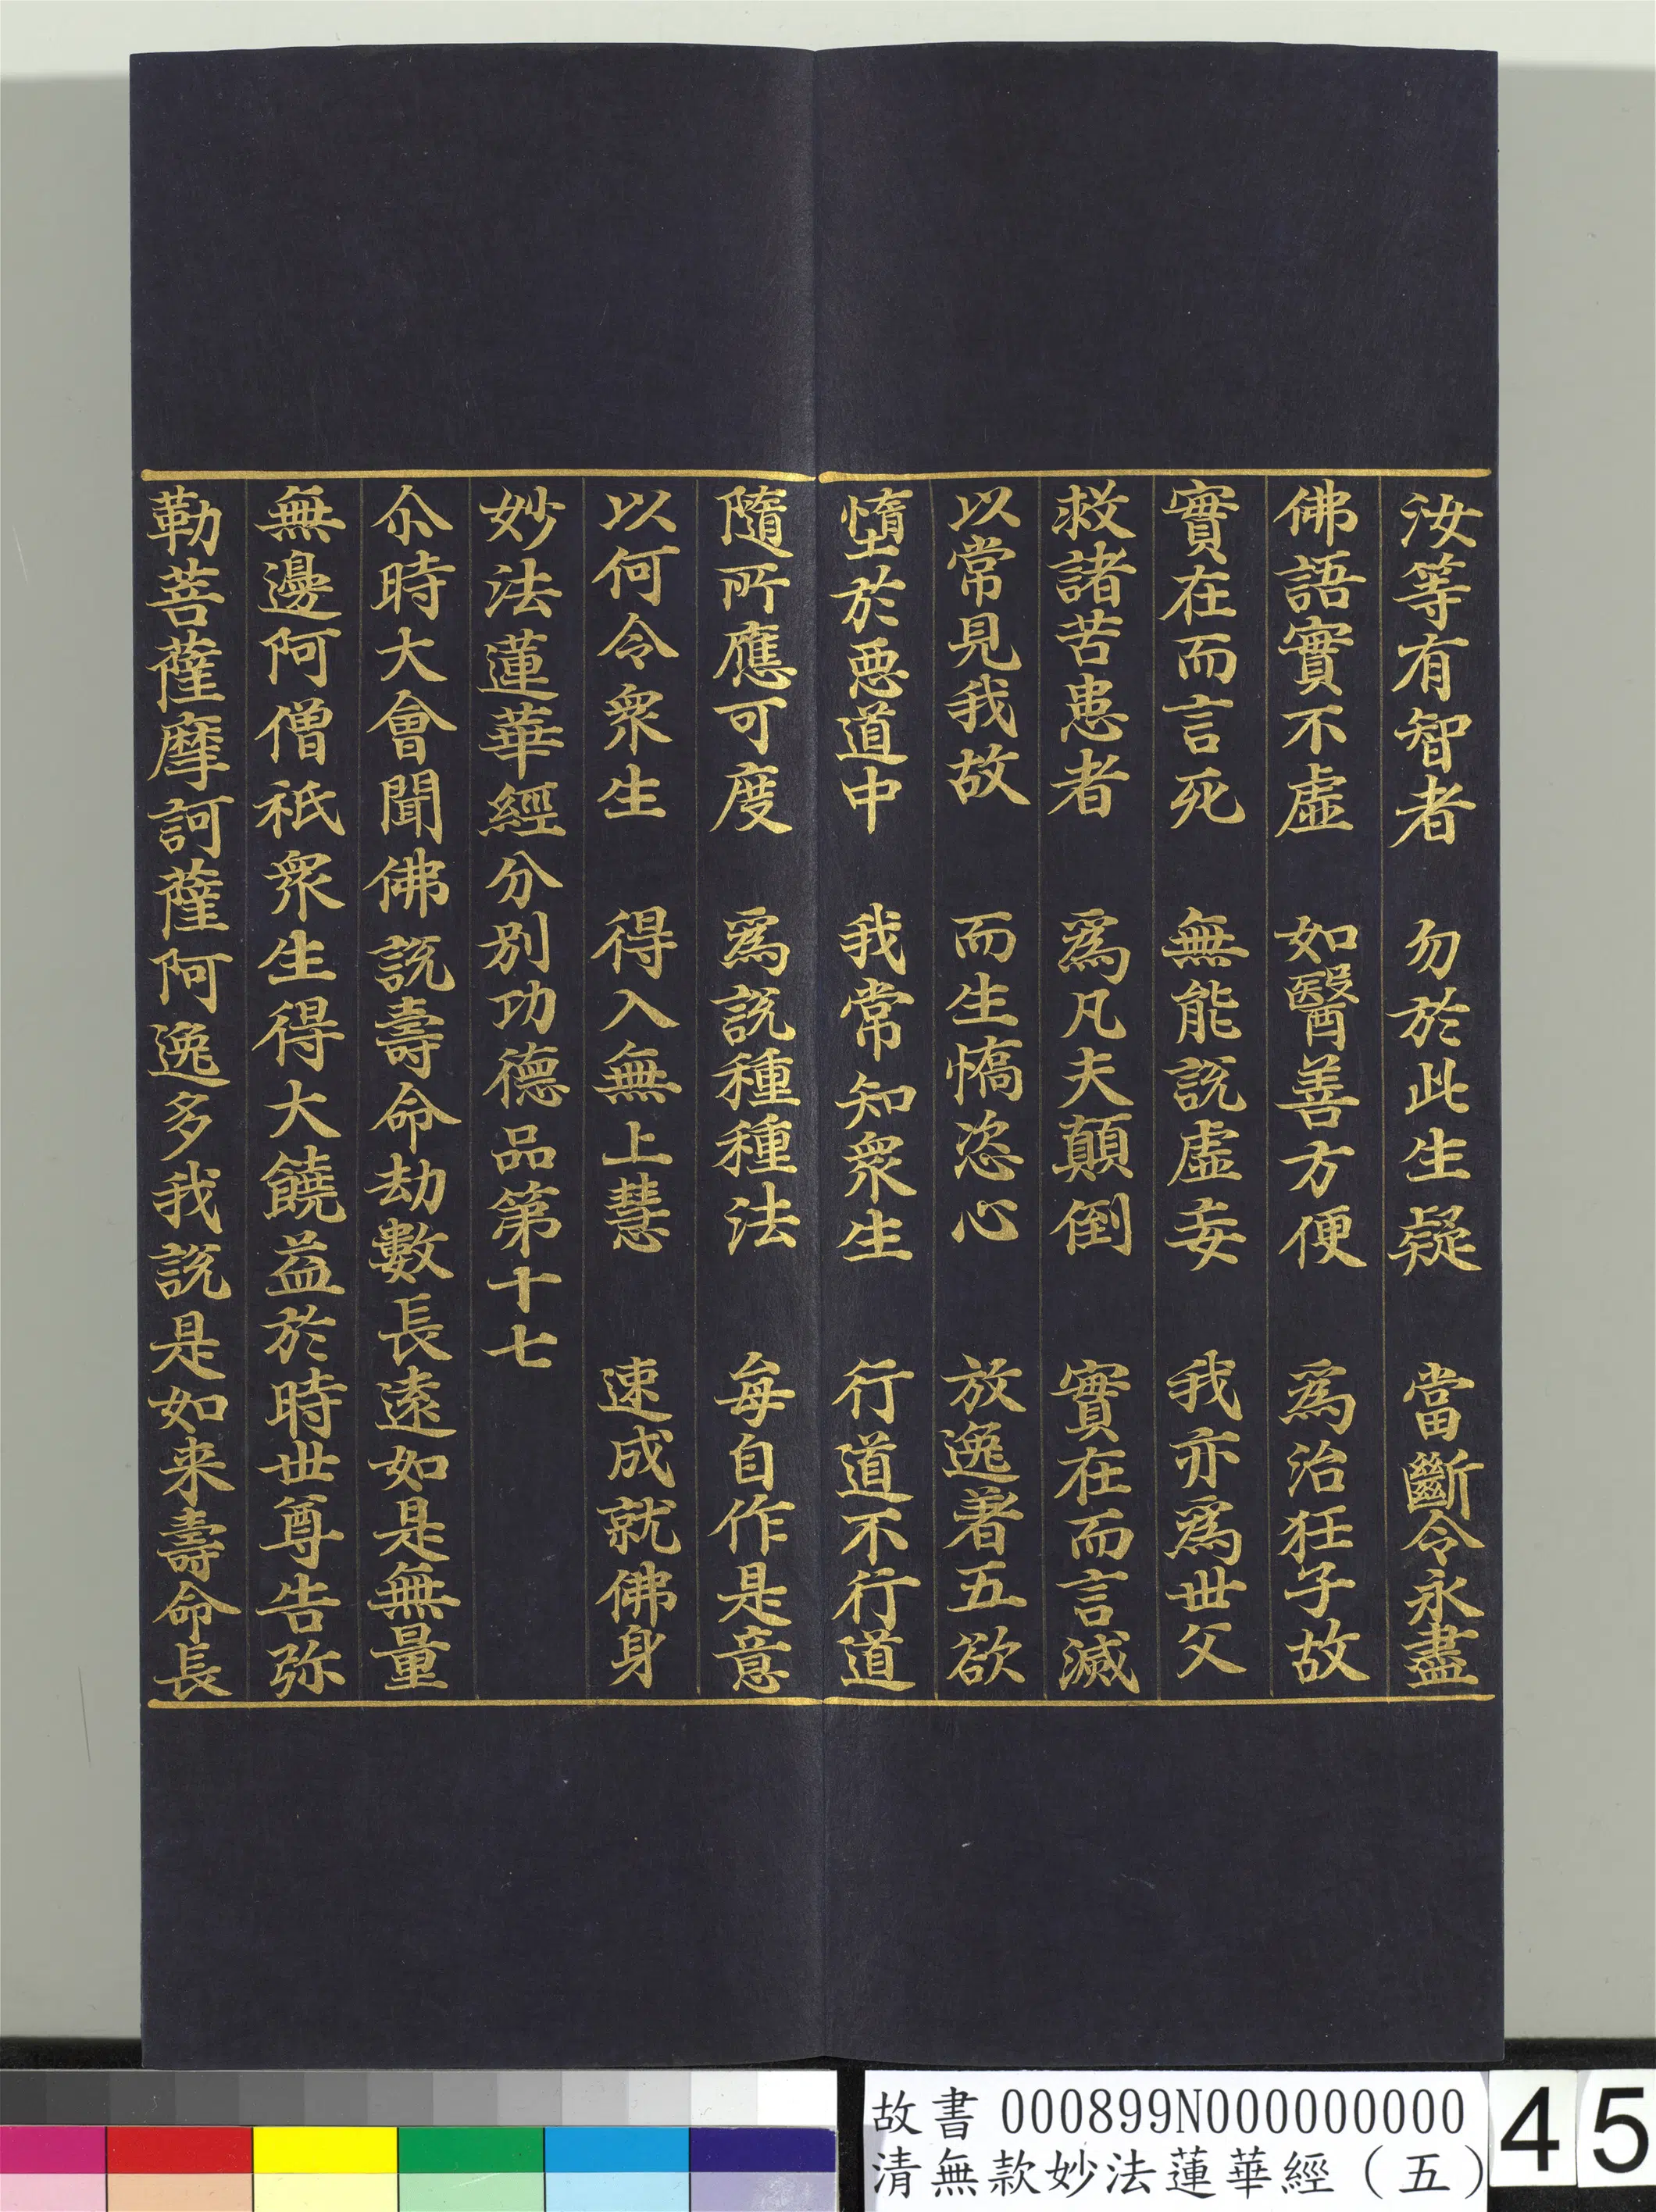 汝等有智者　勿於此生疑　當斷令永盡
佛語實不虛　如醫善方便　爲治狂子故
實在而言死　無能說虛妄　我亦爲世父
救諸苦患者　爲凡夫顛倒　實在而言滅
以常見我故　而生憍恣心　放逸著五欲
墮於惡道中　我常知衆生　行道不行道
隨所應可度　爲說種種法　每自作是意
以何令衆生　得入無上慧　速成就佛身
妙法蓮華經分別功德品第十七
尒時大會聞佛說壽命劫數長遠如是無量
無邊阿僧祇衆生得大饒益於時世尊告弥
勒菩薩摩訶薩阿逸多我說是如来壽命長
故書 000899N000000000
清無款妙法蓮華經（五）
45